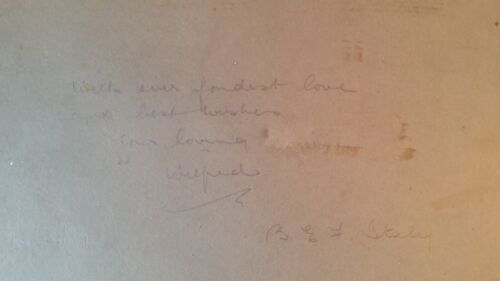 With ever fondest love
and best wishes
Your loving
Wilfred
B E F. Italy